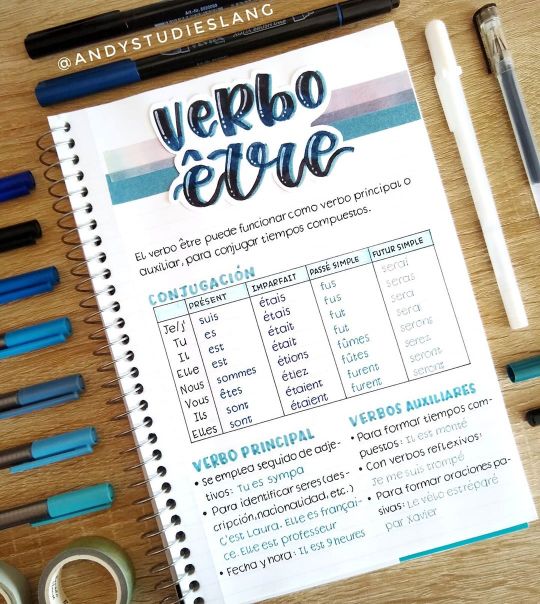 @ANDYSTUDIESLANG
verbo
être
El verbo être puede funcionar como verbo principal o
auxiliar, para conjugar tiempos compuestos.
CONJUGACIÓN
PRÉSENT IMPARFAIT PASSÉ SIMPLE FUTUR SIMPLE
Je/j' suis étais fus serai
Tu es étais fus seras
Il est était fut sera
Elle est était fut sera
Nous sommes étions fûmes serons
Vous êtes étiez fûtes serez
Ils sont étaient furent seront
Elles sont étaient furent seront
VERBO PRINCIPAL
• Se emplea seguido de adje-
tivos: Tu es sympa
• Para identificar seres (des-
cripción, nacionalidad, etc.)
C'est Laura. Elle es françai-
ce. Elle est professeur
• Fecha y hora: Il est 9 heures
VERBOS AUXILIARES
• Para formar tiempos com-
puestos: Il est monté
• Con verbos reflexivos:
Je me suis trompé
• Para formar oraciones pa-
sivas: Le vélo est réparé
par Xavier